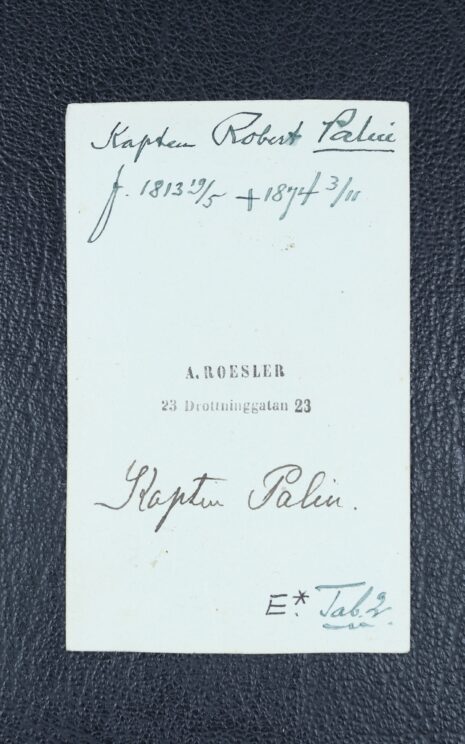 Kapten Robert Palin
f. 1813 19/5 + 1874 3/11
A. ROESLER
23 Drottninggatan 23
Kapten Palin.
E.* Tab. 2.